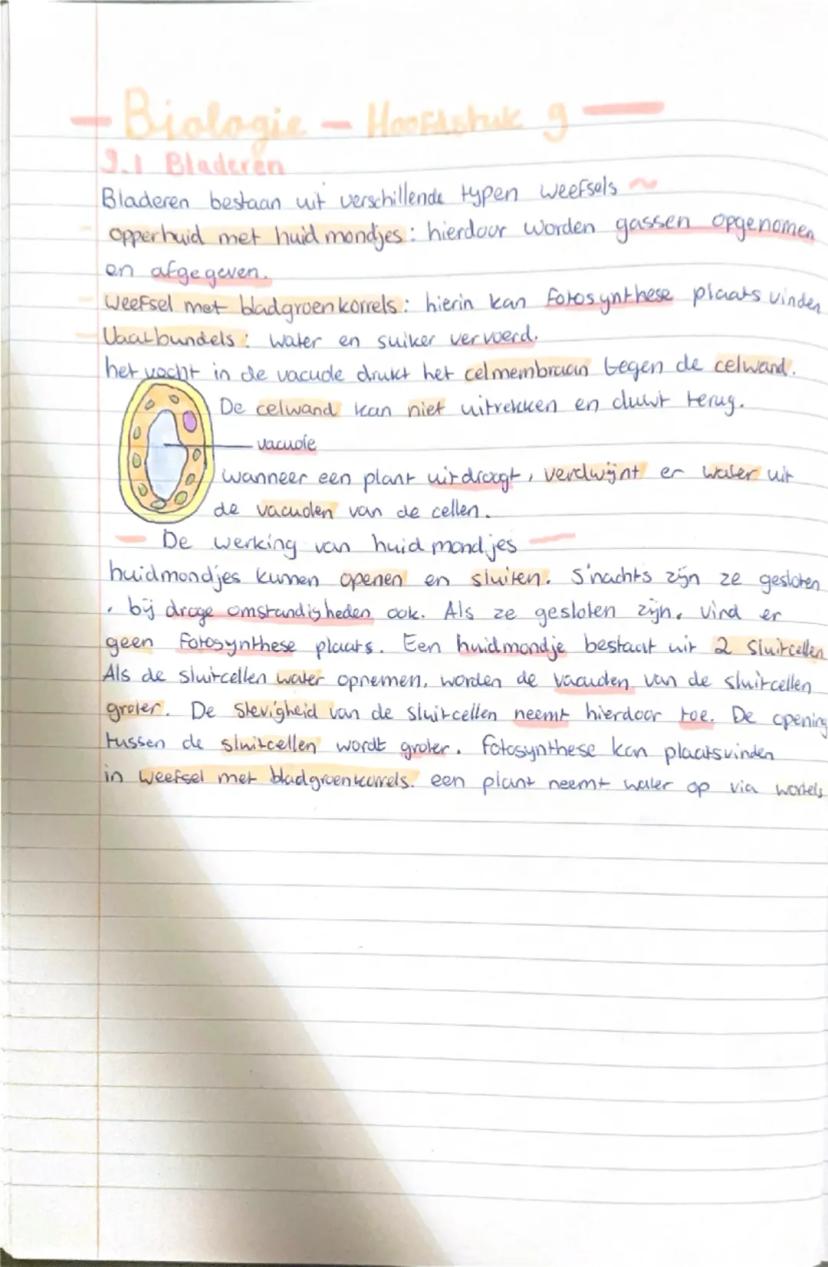 Biologie - Hoofdstuk 9
9.1 Bladeren
Bladeren bestaan uit verschillende typen weefsels ~
- opperhuid met huidmondjes: hierdoor worden gassen opgenomen
en afgegeven.
- Weefsel met bladgroenkorrels: hierin kan fotosynthese plaats vinden
- Vaatbundels: water en suiker vervoerd.
het vocht in de vacuole drukt het celmembraan tegen de celwand.
De celwand kan niet uitrekken en duwt terug.
vacuole
Wanneer een plant uitdroogt, verdwijnt er water uit
de vacuolen van de cellen.
- De werking van huidmondjes -
huidmondjes kunnen openen en sluiten. S'nachts zijn ze gesloten
, bij droge omstandigheden ook. Als ze gesloten zijn, vind er
geen fotosynthese plaats. Een huidmondje bestaat uit 2 sluitcellen
Als de sluitcellen water opnemen, worden de vacuolen van de sluitcellen
groter. De stevigheid van de sluitcellen neemt hierdoor toe. De opening
tussen de sluitcellen wordt groter. Fotosynthese kan plaatsvinden
in weefsel met bladgroenkorrels. een plant neemt water op via wortels